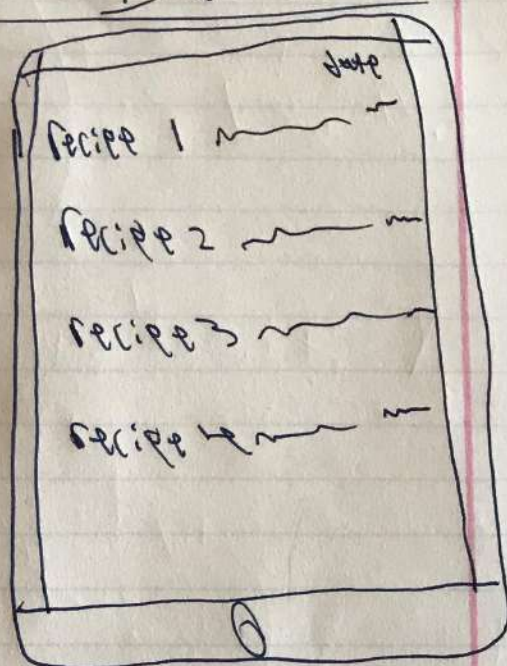 date
recipe 1
recipe 2
recipe 3
recipe 4